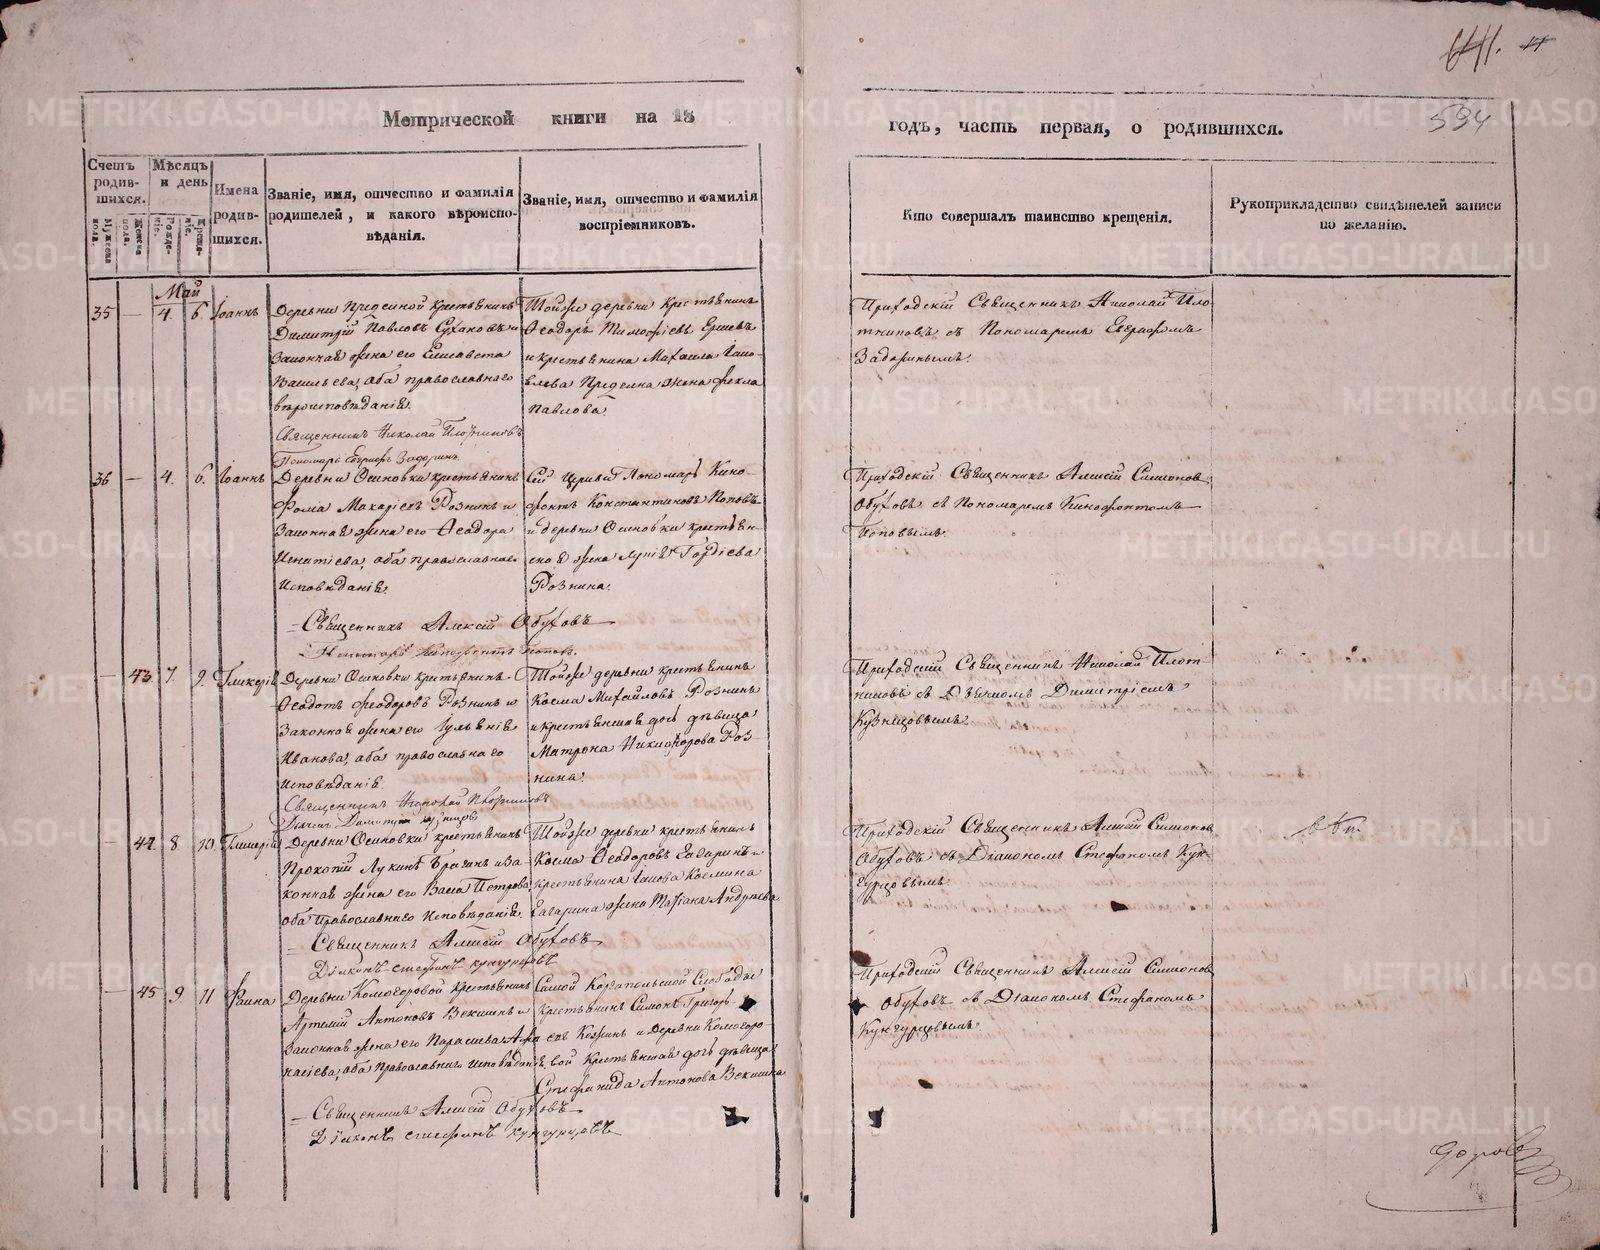 641. 11
534
Метрической книги на 18
годъ, часть первая, о родившихся.
Счетъ родив-шихся.
Мужеска пола.
Женска пола.
Мѣсяцъ и день
Рожде-нія.
Креще-нія.
Имена родив-шихся.
Званіе, имя, отчество и фамилія
родителей, и какого вѣроиспо-
вѣданія.
Званіе, имя, отчество и фамилія
воспріемниковъ.
Кто совершалъ таинство крещенія.
Рукоприкладство свидѣтелей записи
по желанію.
Май
35 — 4. 6 Іоаннъ
Деревни крестьянинъ
Димитрій Павловъ и
Законная жена его Елисавета
Васильева, оба православнаго
вѣроисповѣданія.
Священникъ Николай Плотниковъ
Пономарь Задоринъ
Тойже деревни крестьянинъ
Ѳеодоръ Тимоѳіевъ
и крестьянина Михаила Іако-
влева жена Фекла
Павлова.
Приходскій Священникъ Николай Пло-
тниковъ съ Пономаремъ
Задоринымъ.
36 — 4. 6. Іоаннъ
Деревни Осиновки крестьянинъ
Фома Макаріевъ Рознинъ и
Законная жена его Ѳеодора
Игнатіева, оба православнаго
Исповѣданія.
— Священникъ Алексій Обуховъ —
Пономарь Ксенофонтъ Поповъ.
Сей Церкви Пономарь Ксено-
фонтъ Константиновъ Поповъ
и деревни Осиновки крестьян-
ская жена Гордіева
Рознина.
Приходскій Священникъ Алексій Симонов
Обуховъ съ Пономаремъ Ксенофонтомъ
Поповымъ.
— 43 7 9. Гликерія
Деревни Осиновки крестьянинъ
Ѳеодотъ Феодоровъ Рознинъ и
Законная жена его Іуліанія
Иванова, оба православнаго
исповѣданія.
Священникъ Николай Плотниковъ
Дьячекъ Димитрій Кузнецовъ
Тойже деревни крестьянинъ
Косма Михайловъ Рознинъ
и крестьянская дочь дѣвица
Матрона Никифорова Роз-
нина.
Приходскій Священникъ Николай Плот-
никовъ съ Дьячкомъ Димитріемъ
Кузнецовымъ.
— 44 8 10 Гликерія
Деревни Осиновки крестьянинъ
Прокопій Лукинъ и За-
конная жена его Васса Петрова
оба Православнаго Исповѣданія.
— Священникъ Алексій Обуховъ
Діаконъ Стефанъ Кунгурцовъ
Тойже деревни крестьянинъ
Косма Ѳеодоровъ Гагаринъ и
крестьянина Іакова Космина
Гагарина жена Андреева
Приходскій Священникъ Алексій Симонов
Обуховъ съ Діакономъ Стефаномъ Кун-
гурцовымъ.
— 45 9 11 Фаина
Деревни Комогоровой крестьянинъ
Артемій Антоновъ Векшинъ и
Законная жена его Параскева Афа
насіева, оба Православнаго исповѣданія.
— Священникъ Алексій Обуховъ —
Діаконъ Стефанъ Кунгурцовъ
Самой Каргапольской Слободы
крестьянинъ Симонъ Григорь-
евъ Кожинъ и Деревни Комогоро-
вой Крестьянская дочь дѣвица
Стефанида Антонова Векшина
Приходскій Священникъ Алексій Симонов
Обуховъ съ Діакономъ Стефаномъ
Кунгурцовымъ.
METRIKI.GASO-URAL.RU